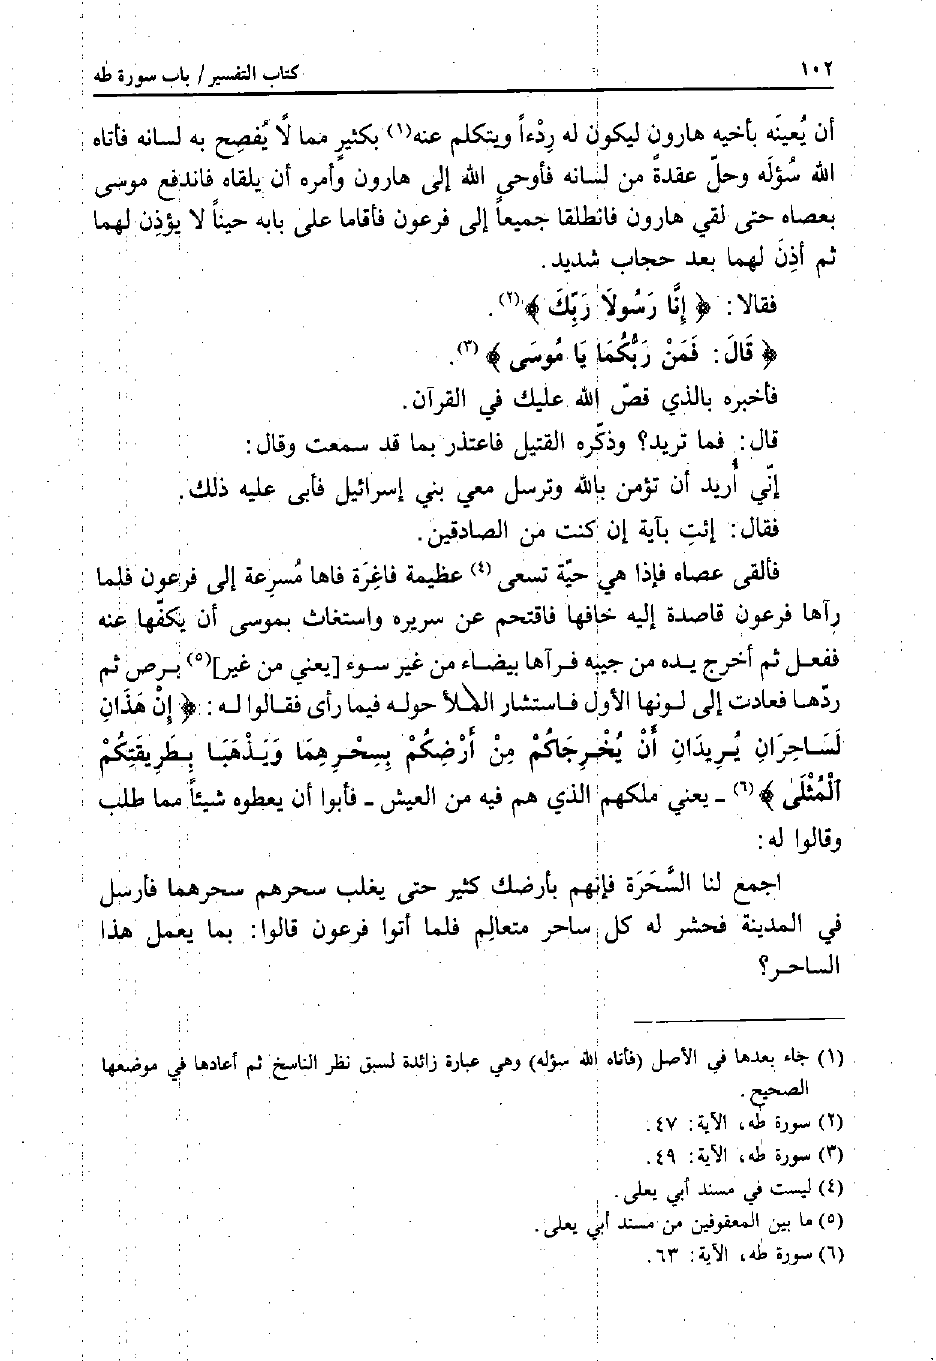 ١٠٢
كتاب التفسير / باب سورة طه
أن يُعينَه بأخيه هارون ليكون له رِدْءاً ويتكلم عنه(١) بكثيرٍ مما لَا يُفصِح به لسانه فأتاه
الله سُؤلَه وحلّ عقدةً من لسانه فأوحى الله إلى هارون وأمره أن يلقاه فاندفع موسى
بعصاه حتى لقي هارون فانطلقا جميعاً إلى فرعون فأقاما على بابه حيناً لا يؤذِن لهما
ثم أذِنَ لهما بعد حجاب شديد.
فقالا: ﴿ إِنَّا رَسُولَا رَبِّكَ ﴾(٢).
﴿ قَالَ: فَمَنْ رَبُّكُمَا يَا مُوسَى ﴾(٣).
فأخبره بالذي قصّ الله عليك في القرآن.
قال: فما تريد؟ وذكّره القتيل فاعتذر بما قد سمعت وقال:
إنّي أُريد أن تؤمن بالله وترسل معي بني إسرائيل فأبى عليه ذلك.
فقال: إئتِ بآية إن كنت من الصادقين.
فألقى عصاه فإذا هي حيّة تسعى(٤) عظيمة فاغِرَة فاها مُسرِعة إلى فرعون فلما
رآها فرعون قاصدة إليه خافها فاقتحم عن سريره واستغاث بموسى أن يكفّها عنه
ففعل ثم أخرج يده من جيبه فرآها بيضاء من غير سوء [يعني من غير](٥) برص ثم
ردّها فعادت إلى لونها الأول فاستشار الملأ حوله فيما رأى فقالوا له: ﴿ إِنْ هَذَانِ
لَسَاحِرَانِ يُرِيدَانِ أَنْ يُخْرِجَاكُمْ مِنْ أَرْضِكُمْ بِسِحْرِهِمَا وَيَذْهَبَا بِطَرِيقَتِكُمْ
ٱلْمُثْلَىٰ ﴾(٦) ـ يعني ملكهم الذي هم فيه من العيش ـ فأبوا أن يعطوه شيئاً مما طلب
وقالوا له:
اجمع لنا السَّحَرَة فإنهم بأرضك كثير حتى يغلب سحرهم سحرهما فأرسل
في المدينة فحشر له كل ساحر متعالِم فلما أتوا فرعون قالوا: بما يعمل هذا
الساحر؟
(١) جاء بعدها في الأصل (فأتاه الله سؤله) وهي عبارة زائدة لسبق نظر الناسخ ثم أعادها في موضعها
الصحيح.
(٢) سورة طه، الآية: ٤٧.
(٣) سورة طه، الآية: ٤٩.
(٤) ليست في مسند أبي يعلى.
(٥) ما بين المعقوفين من مسند أبي يعلى.
(٦) سورة طه، الآية: ٦٣.